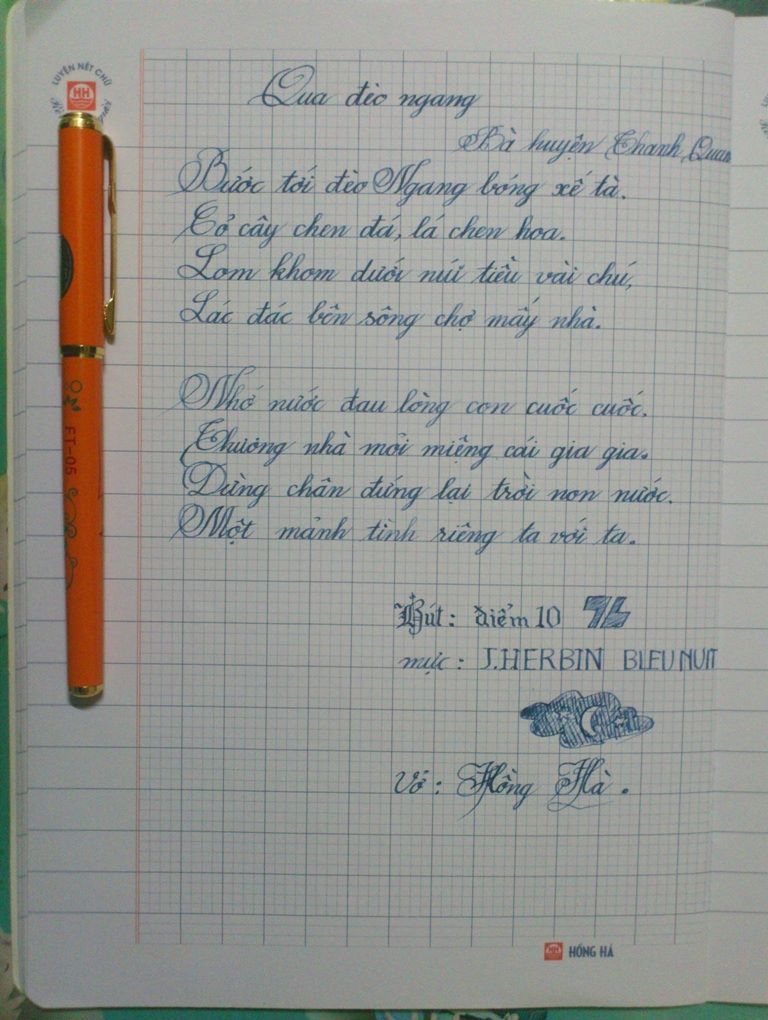 LUYỆN NÉT CHỮ
HH
Qua đèo ngang
Bà huyện Thanh Quan
Bước tới đèo Ngang bóng xế tà.
Cỏ cây chen đá, lá chen hoa.
Lom khom dưới núi tiều vài chú,
Lác đác bên sông chợ mấy nhà.
Nhớ nước đau lòng con cuốc cuốc.
Thương nhà mỏi miệng cái gia gia.
Dừng chân đứng lại trời non nước.
Một mảnh tình riêng ta với ta.
FT-05
Bút: điểm 10
mực: J.HERBIN BLEU NUIT
Vở: Hồng Hà.
HH HỒNG HÀ